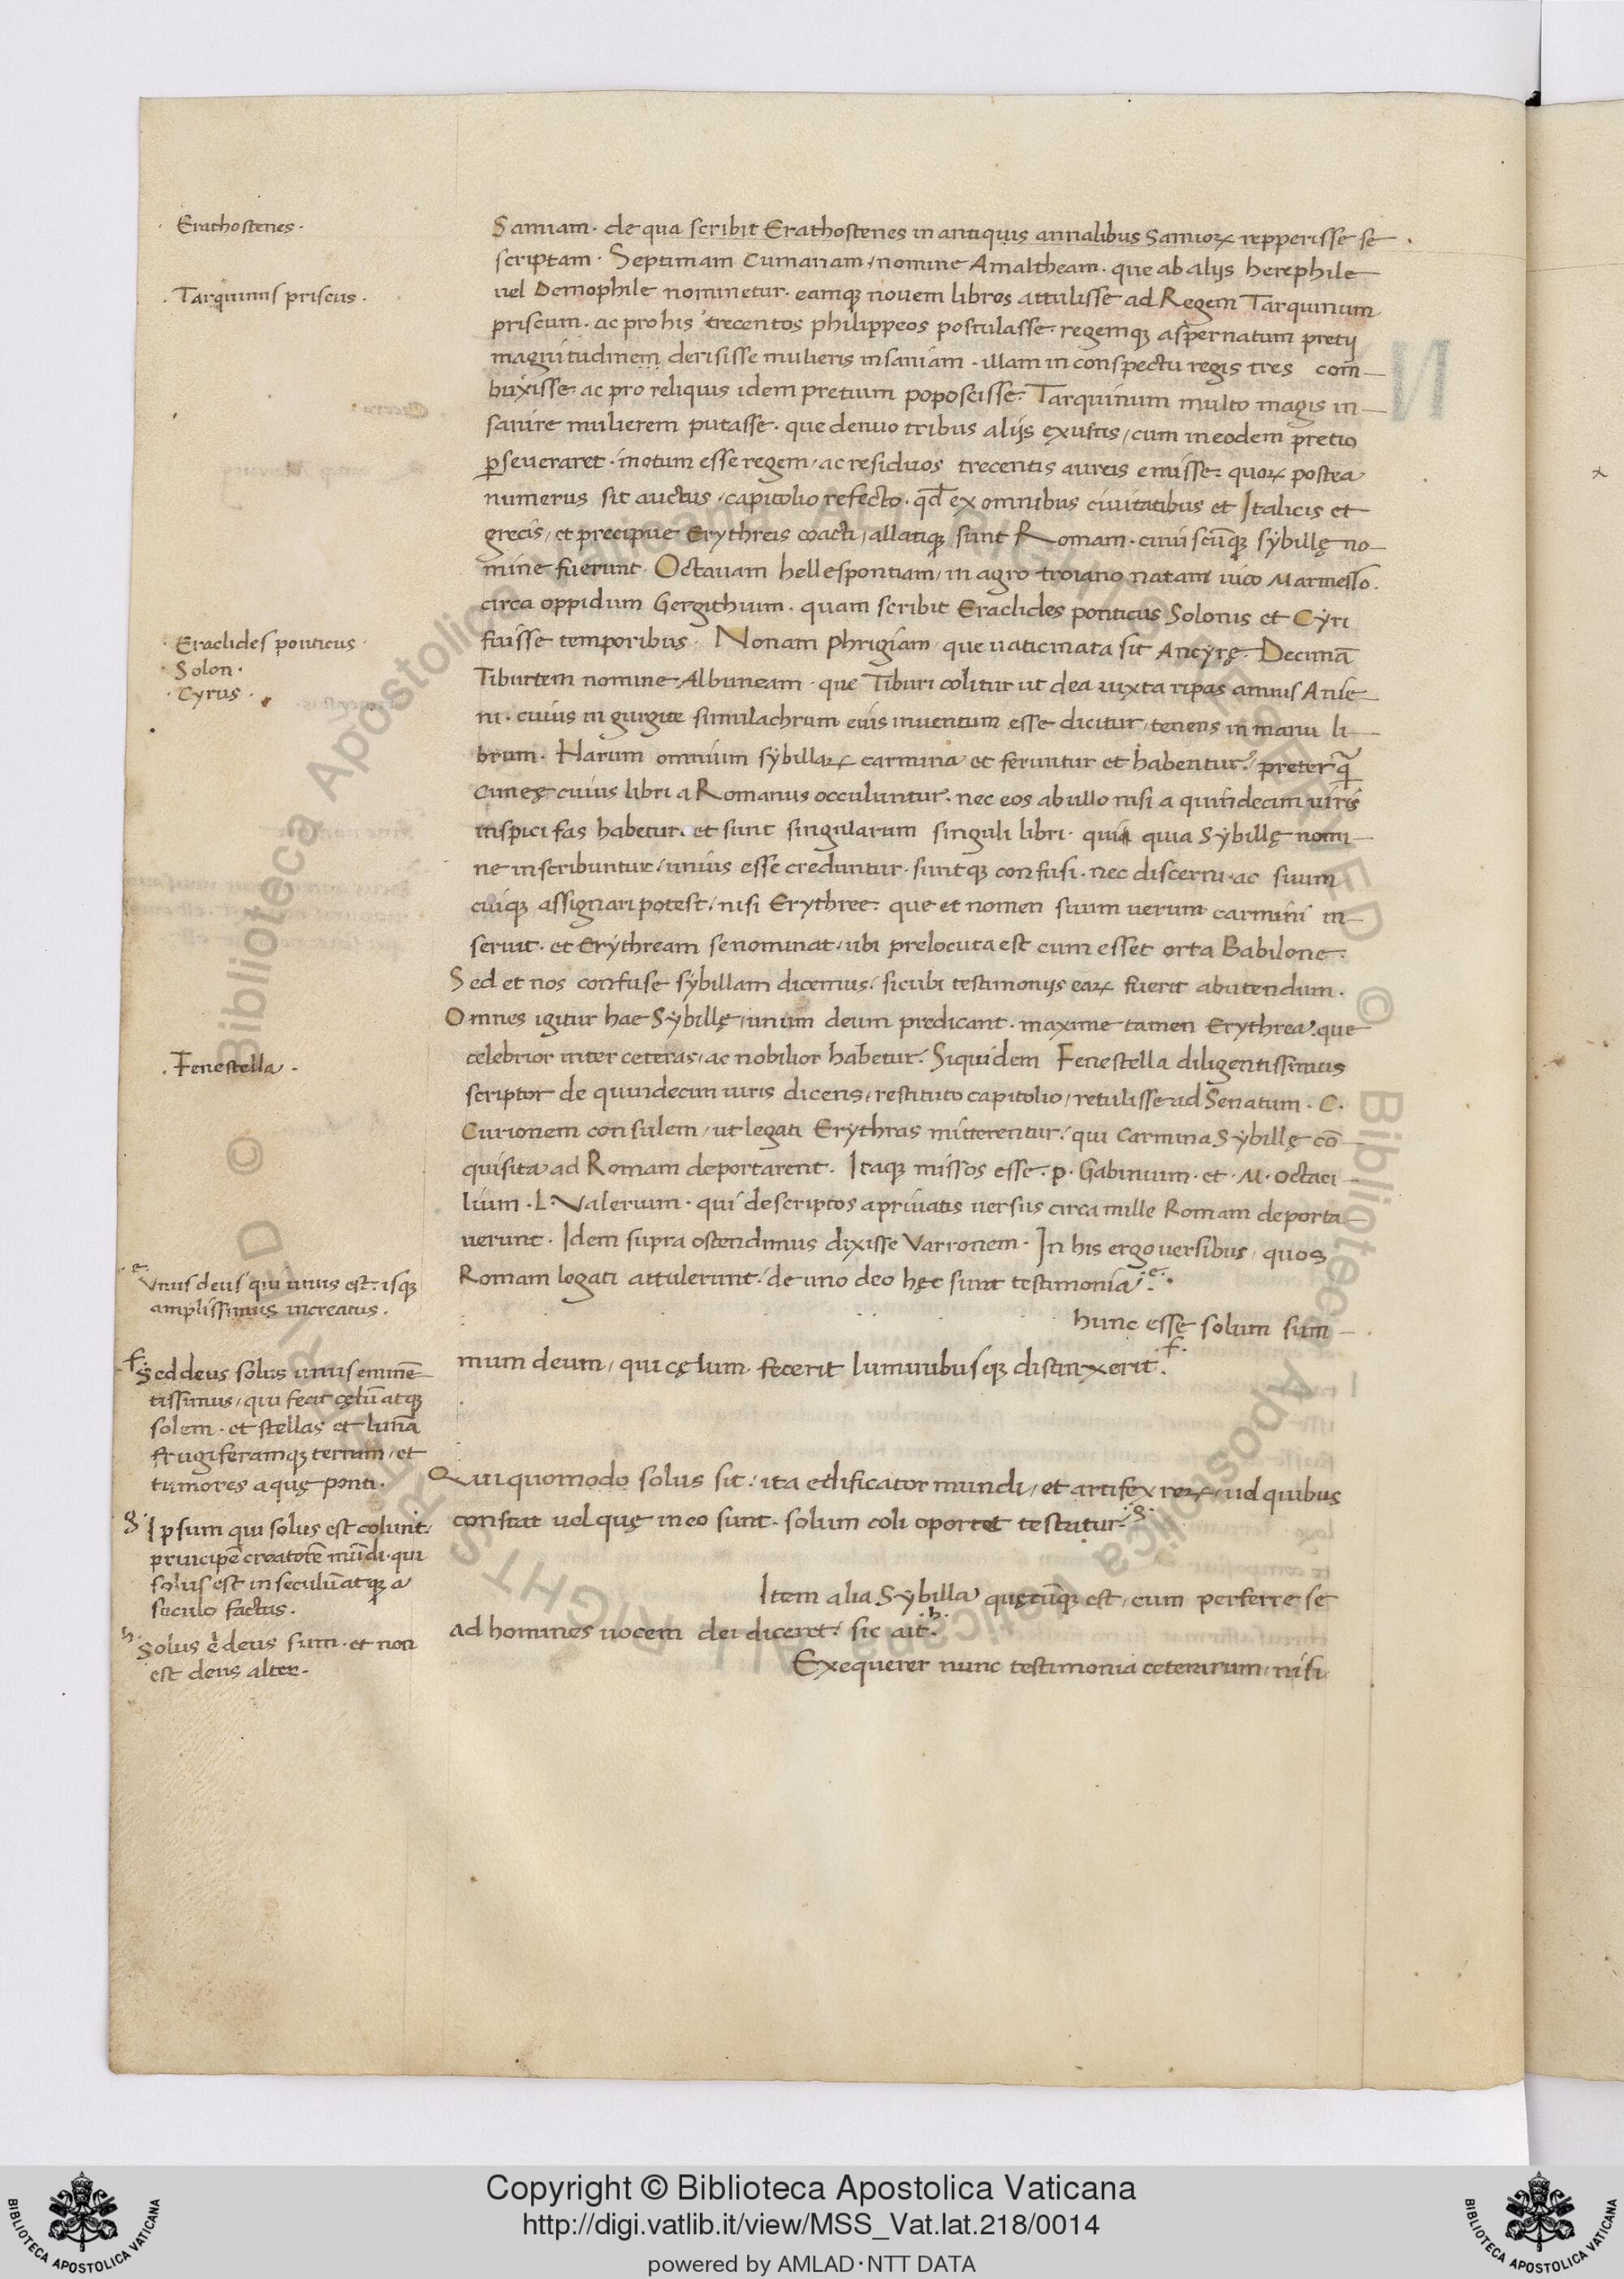 Erathostenes.
Samiam. de qua scribit Erathostenes in antiquis annalibus Samioꝝ repperisse se
scriptam. Septimam Cumanam, nomine Amaltheam. que ab alijs herephile
Tarquinius priscus.
uel Demophile nominetur. eamqꝫ nouem libros attulisse ad Regem Tarquinium
priscum. ac pro his trecentos philippeos postulasse. regemqꝫ aspernatum pretij
magnitudinem derisisse mulieris insaniam. illam in conspectu regis tres com-
buxisse. ac pro reliquis idem pretium poposcisse. Tarquinium multo magis in-
sanire mulierem putasse. que denuo tribus alijs exustis, cum in eodem pretio
ꝑseueraret. motum esse regem, ac residuos trecentis aureis emisse: quoꝝ postea
numerus sit auctus, capitolio refecto. qd̄ ex omnibus ciuitatibus et Italicis et
grecis, et precipue Erythreis coacti, allatiqꝫ sunt Romam. cuiuscūqꝫ sybillę no-
mine fuerunt. Octauam hellespontiam, in agro troiano natam uico Marmesso.
circa oppidum Gergithium. quam scribit Eraclides ponticus Solonis et Cyri
Eraclides ponticus
Solon.
Cyrus.
fuisse temporibus. Nonam Phrigiam, que uaticinata sit Ancyrę. Decimā
Tiburtem nomine Albuneam. que Tiburi colitur ut dea iuxta ripas amnis Anie-
ni. cuius in gurgite simulachrum eius inuentum esse dicitur, tenens in manu li-
brum. Harum omnium sybillaꝝ carmina et feruntur et habentur. preterq̄
Cumeę cuius libri a Romanis occuluntur. nec eos ab ullo nisi a quindecim uiris
inspici fas habetur. et sunt singularum singuli libri. qui quia Sybillę nomi-
ne inscribuntur, unius esse creduntur. suntqꝫ confusi. nec discerni ac suum
cuiqꝫ assignari potest, nisi Erythreę. que et nomen suum uerum carmini in-
seruit. et Erythream se nominat, ubi prelocuta est cum esset orta Babilone.
Sed et nos confuse sybillam dicemus, sicubi testimonijs eaꝝ fuerit abutendum.
Omnes igitur hae Sybillę, unum deum predicant. maxime tamen Erythrea. que
Fenestella.
celebrior inter ceteras, ac nobilior habetur. Siquidem Fenestella diligentissimus
scriptor de quindecim uiris dicens, restituto capitolio, retulisse ad Senatum. C.
Curionem consulem, ut legati Erythras mitterentur, qui Carmina Sybillę cō-
quisita ad Romam deportarent. Itaqꝫ missos esse. p. Gabinium. et. M. octaci-
lium. L. Valerium. qui descriptos a priuatis uersus circa mille Romam deporta-
uerunt. Idem supra ostendimus dixisse Varronem. In his ergo uersibus, quos
Romam legati attulerunt, de uno deo hęc sunt testimonia. e.
e. Vnus deus qui unus est. isqꝫ
amplissimus increatus.
hunc esse solum sum-
mum deum, qui cęlum fecerit luminibusqꝫ distinxerit. f.
f. Sed deus solus unus eminē-
tissimus, qui fecit cęlū atqꝫ
solem. et stellas et lunā
frugiferamqꝫ terram, et
tumores aquę ponti.
Qui quomodo solus sit, ita edificator mundi, et artifex reꝝ, uel quibus
constat uel quę in eo sunt. solum coli oportet testatur. g.
g. Ipsum qui solus est colunt.
principē creatorē mūdi. qui
solus est in seculū atqꝫ a
seculo factus.
Item alia Sybilla quęcūqꝫ est, cum perferre se
ad homines uocem dei diceret, sic ait. h.
h. Solus .n. deus sum. et non
est deus alter.
Exequerer nunc testimonia ceterarum, nisi
Copyright © Biblioteca Apostolica Vaticana
http://digi.vatlib.it/view/MSS_Vat.lat.218/0014
powered by AMLAD·NTT DATA
BIBLIOTECA APOSTOLICA VATICANA
BIBLIOTECA APOSTOLICA VATICANA